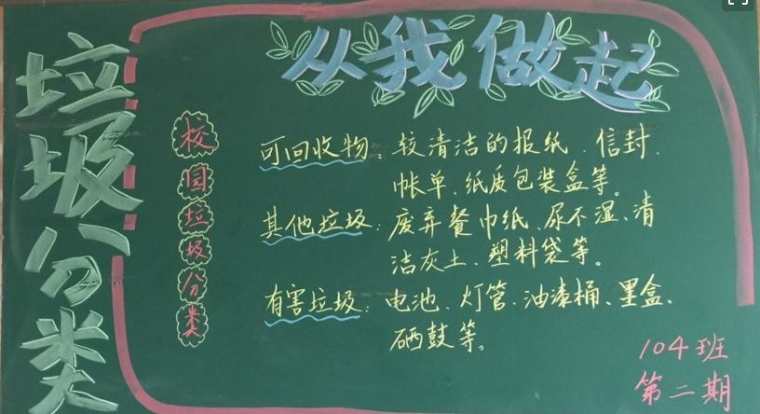 垃圾分类
从我做起
校园垃圾分类
可回收物：较清洁的报纸、信封、
帐单、纸质包装盒等。
其他垃圾：废弃餐巾纸、尿不湿、清
洁灰土、塑料袋等。
有害垃圾：电池、灯管、油漆桶、墨盒、
硒鼓等。
104班
第二期